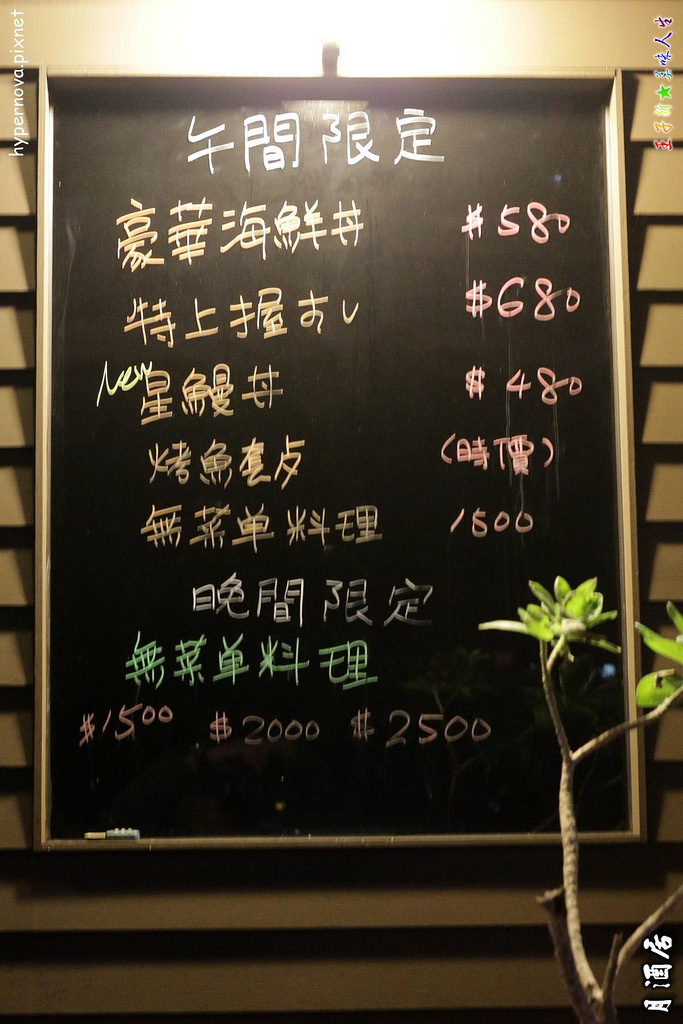 hypernova.pixnet
王子街★美味人生
午間限定
豪華海鮮丼 $580
特上握すし $680
New 星鰻丼 $480
烤魚套歺 (時價)
無菜单料理 1500
晚間限定
無菜单料理
$1500 $2000 $2500
月酒居